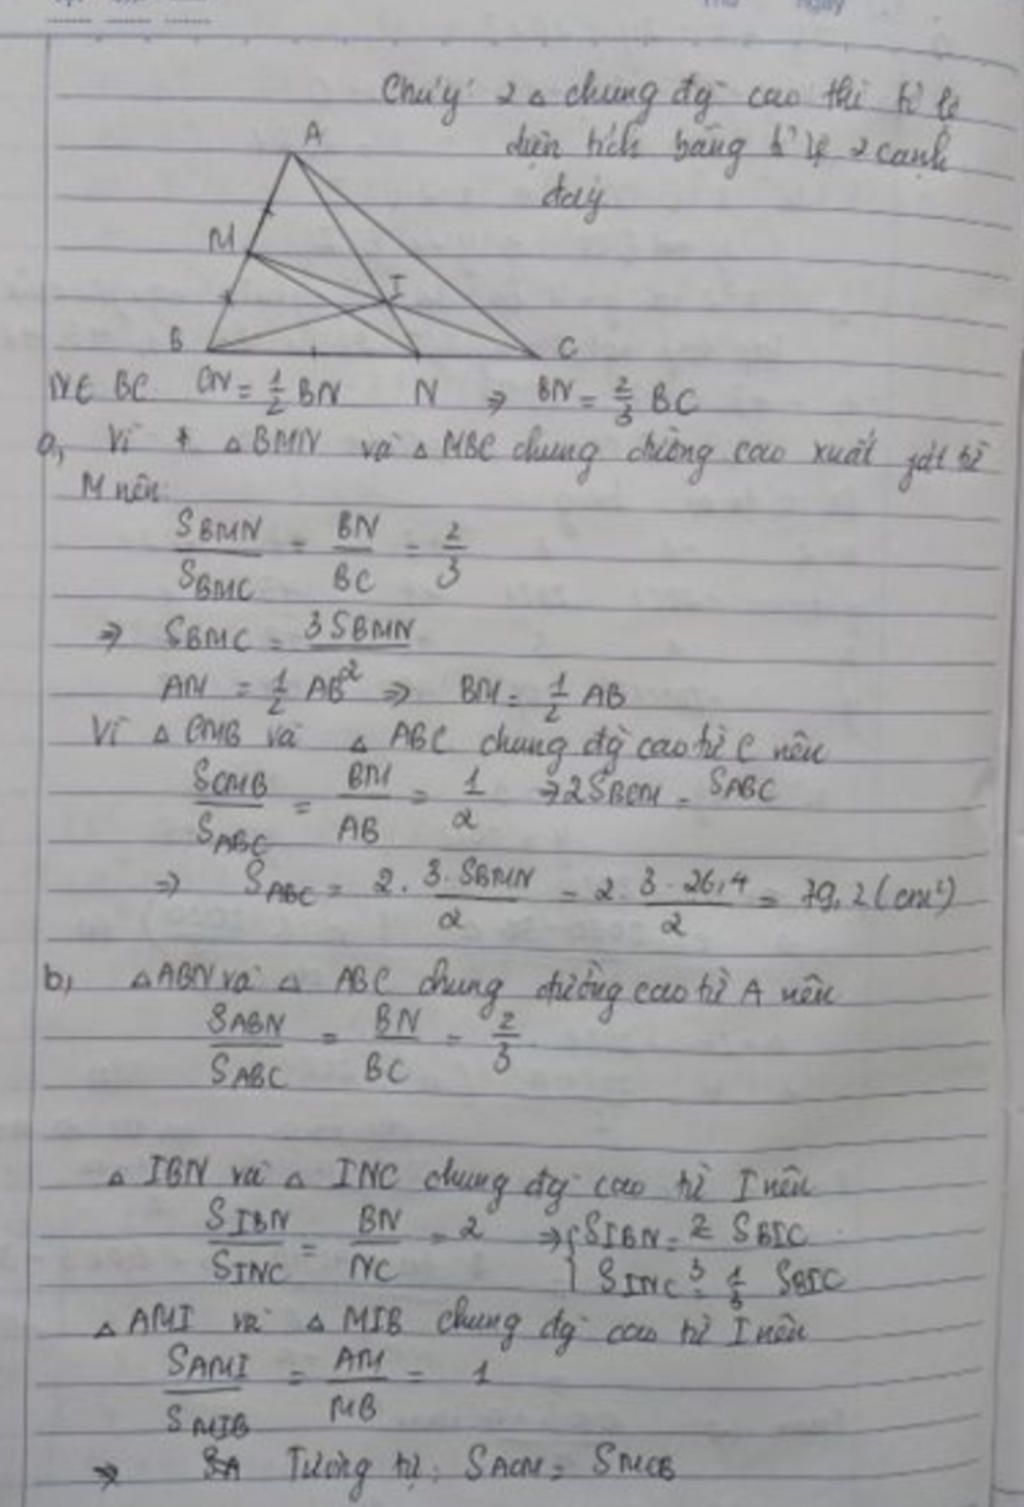 Chú ý: 2 △ chung đg cao thì tỉ lệ
diện tích bằng tỉ lệ 2 cạnh
đáy
A
M
I
B
C
N ∈ BC. CN = 1/2 BN N ⇒ BN = 2/3 BC
a, Vì * △ BMN và △ MBC chung đường cao xuất phát từ
M nên:
S BMN / S BMC = BN / BC = 2/3
⇒ S BMC = 3 S BMN / 2
AM = 1/2 AB ⇒ BM = 1/2 AB
Vì △ CMB và △ ABC chung đg cao từ C nên
S CMB / S ABC = BM / AB = 1/2 ⇒ 2 S BCM = S ABC
⇒ S ABC = 2. 3. S BMN / 2 = 2. 3. 26,4 / 2 = 79,2 (cm²)
b, △ ABN và △ ABC chung đường cao từ A nên
S ABN / S ABC = BN / BC = 2/3
△ IBN và △ INC chung đg cao từ I nên
S IBN / S INC = BN / NC = 2 ⇒ { S IBN = 2/3 S BIC
S INC = 1/3 S BIC
△ AMI và △ MIB chung đg cao từ I nên
S AMI / S MIB = AM / MB = 1
⇒ SA Tương tự: S ACM = S MCB